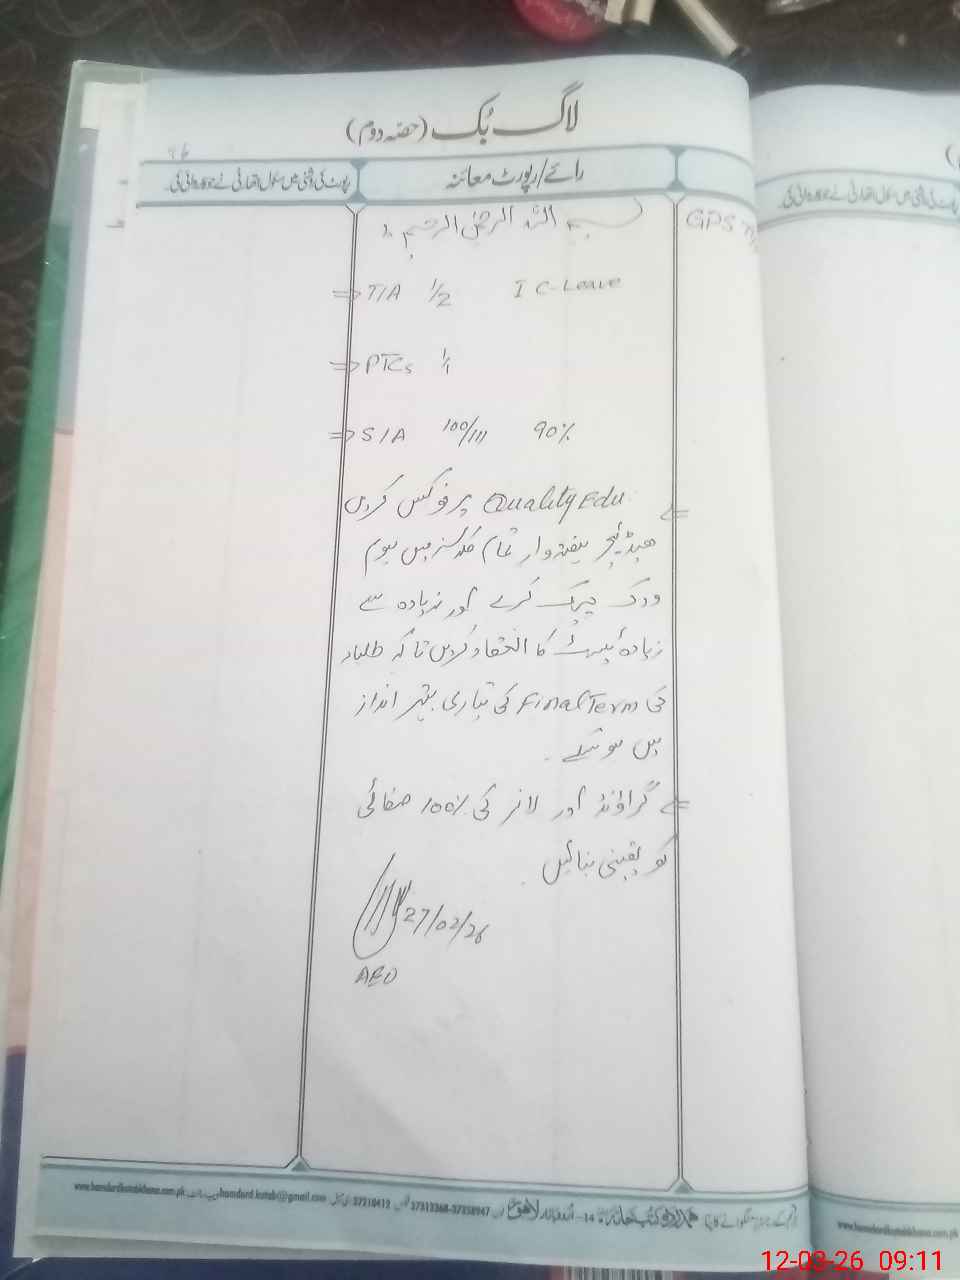 لاگ بُک (حصہ دوم)
رائے/رپورٹ معائنہ
رپورٹ کی روشنی میں سکول اتھارٹی نے جو کارروائی کی۔
GPS
بسم اللہ الرحمٰن الرحیم
⇒ T/A 1/2 1 C-Leave
⇒ PTCs 1/1
⇒ S/A 100/111 90%
Quality Edu پر فوکس کریں
ہیڈ ٹیچر ہفتہ وار تمام کلاسز میں ہوم
ورک چیک کرے اور زیادہ سے
زیادہ ٹیسٹ کا انعقاد کریں تاکہ طلباء
کی Final Term کی تیاری بہتر انداز
میں ہو سکے۔
گراؤنڈ اور لانز کی 100% صفائی
کو یقینی بنائیں۔
27/02/26
AEO
www.hamdardkutabkhana.com.pk hamdard.kutab@gmail.com 37210412 37313368-37358947
www.hamdardkutabkhana.com.pk
12-03-26 09:11